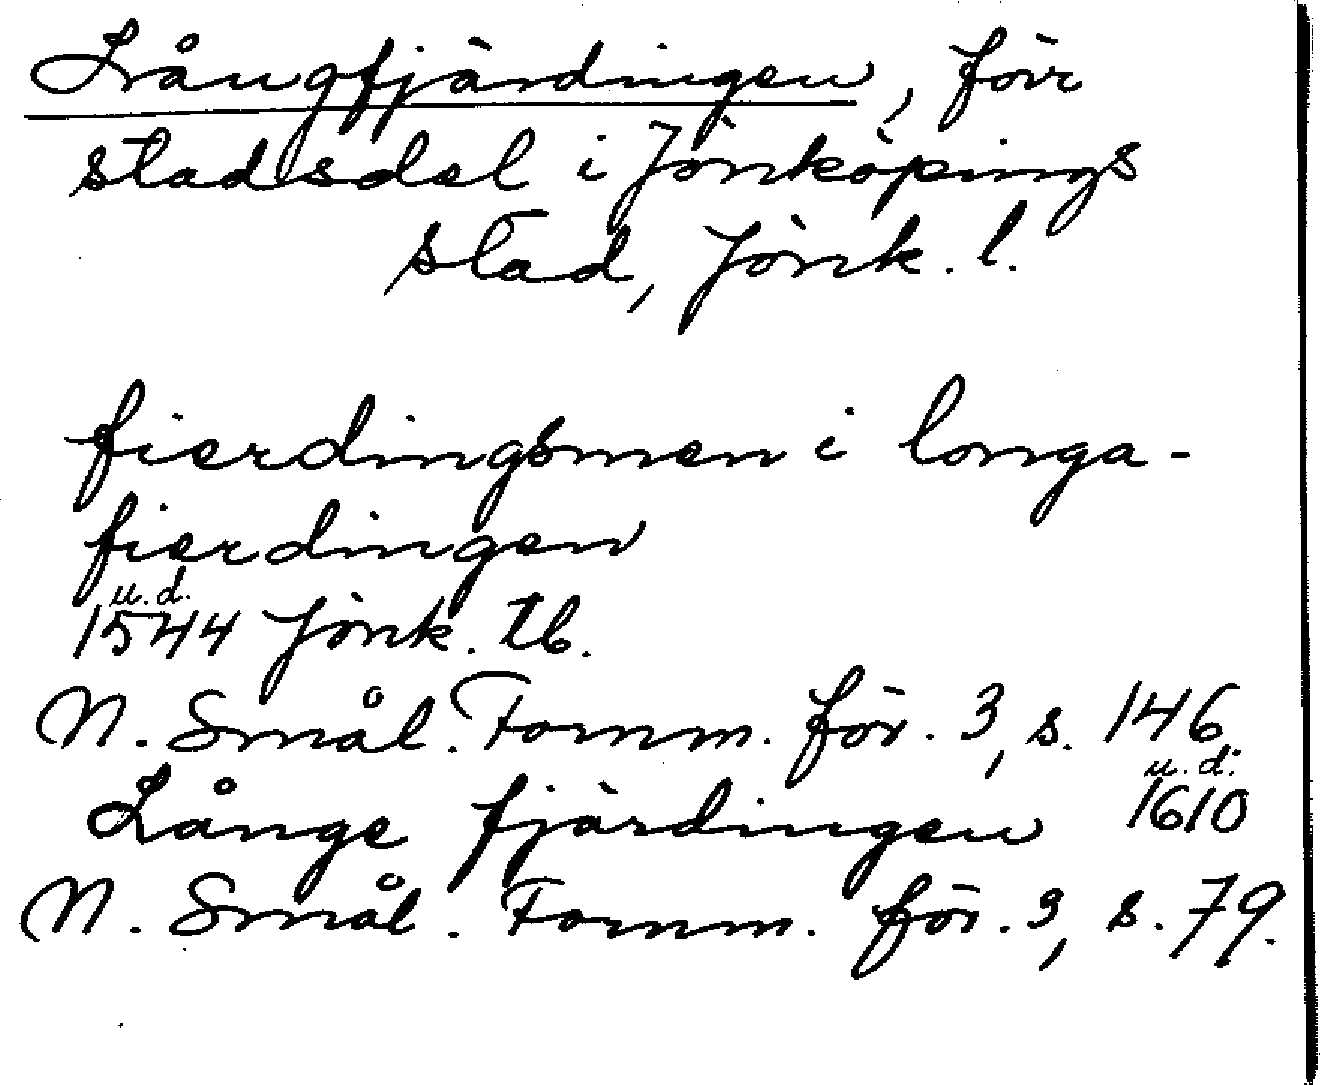 Långfjärdingen, förr
stadsdel i Jönköpings
stad, Jönk. l.
fierdingsmen i longa-
fierdingen
u.d.
1544 Jönk. tb.
N. Smål. Fornm. för. 3, s. 146
Långe fjärdingen u.d. 1610
N. Smål. Fornm. för. 3, s. 79.